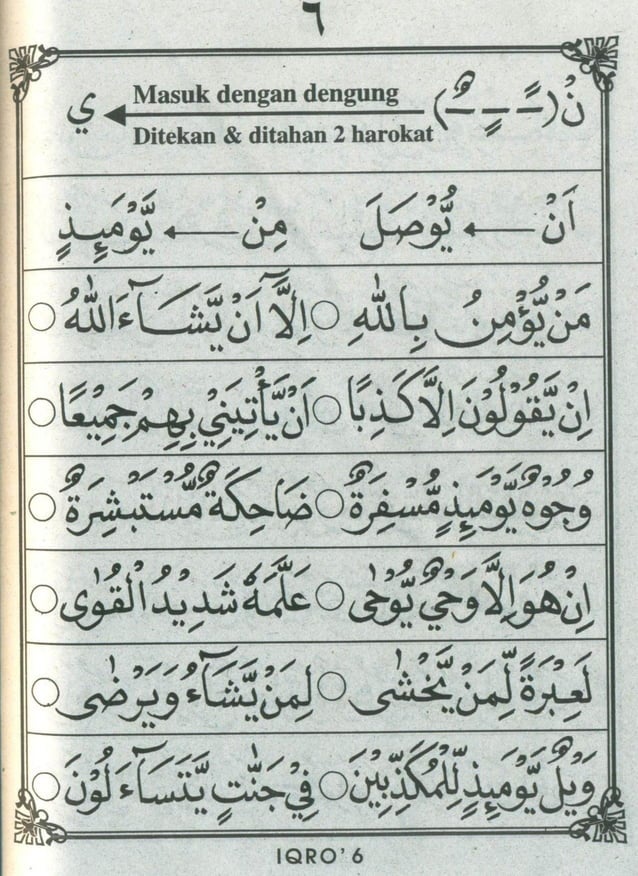 ٦
نْ (ـًـ ـٍـ ـٌـ) Masuk dengan dengung ي
Ditekan & ditahan 2 harokat
اَنْ ← يُّوْصَلَ مِنْ ← يَّوْمَىِٕذٍ
مَنْ يُّؤْمِنُ بِاللّٰهِ ○ اِلَّآ اَنْ يَّشَآءَ اللّٰهُ ○
اِنْ يَّقُوْلُوْنَ اِلَّا كَذِبًا ○ اَنْ يَّأْتِيَنِيْ بِهِمْ جَمِيْعًا ○
وُجُوْهٌ يَّوْمَىِٕذٍ مُّسْفِرَةٌ ○ ضَاحِكَةٌ مُّسْتَبْشِرَةٌ ○
اِنْ هُوَ اِلَّا وَحْيٌ يُّوْحٰى ○ عَلَّمَهٗ شَدِيْدُ الْقُوٰى ○
لَعِبْرَةً لِّمَنْ يَّخْشٰى ○ لِمَنْ يَّشَآءُ وَيَرْضٰى ○
وَيْلٌ يَّوْمَىِٕذٍ لِّلْمُكَذِّبِيْنَ ○ فِيْ جَنّٰتٍ يَّتَسَآءَلُوْنَ ○
IQRO' 6